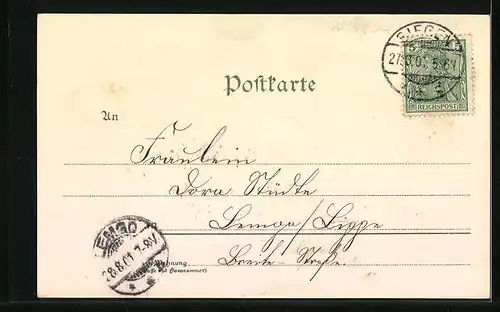 SIEGEN
27.8.01. 5-6N
5
REICHSPOST
Postkarte
An
Fräulein
Dora Städte
Lemgo/Lippe
Breite-Straße.
LEMGO
28.8.01 7-8V
Wohnung
(Straße und Hausnummer)